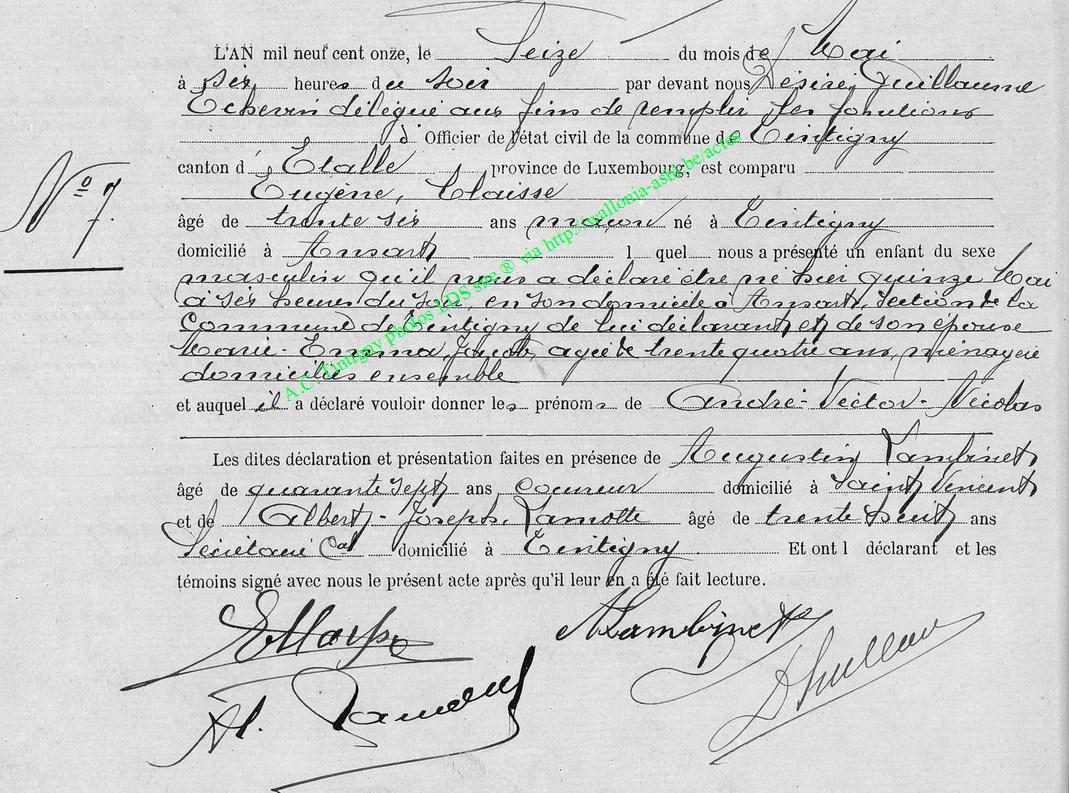 L'AN mil neuf cent onze, le Seize du mois de Mai
à six heures du soir par devant nous Désiré Guillaume
Echevin délégué aux fins de remplir les fonctions
d' Officier de l'état civil de la commune de Tintigny
canton d' Etalle province de Luxembourg, est comparu
Eugène, Claisse
N° 7.
âgé de trente six ans maçon né à Tintigny
domicilié à Ansart l quel nous a présenté un enfant du sexe
masculin qu'il nous a déclaré être né hier quinze Mai
à six heures du soir en son domicile à Ansart, section de la
Commune de Tintigny de lui déclarant et de son épouse
Marie-Emma, Jacob, agée de trente quatre ans, ménagère
domiciliés ensemble
et auquel il a déclaré vouloir donner les prénoms de André-Victor-Nicolas
Les dites déclaration et présentation faites en présence de Augustin Lambinet
âgé de quarante sept ans, couvreur domicilié à Saint Vincent
et de Albert-Joseph, Lamotte âgé de trente huit ans
Secrétaire Cal domicilié à Tintigny Et ont l déclarant et les
témoins signé avec nous le présent acte après qu'il leur en a été fait lecture.
ALambinet
DGuillaume
A.C. Tintigny photos LDS site ® via http://wallonia-asbl.be/actes